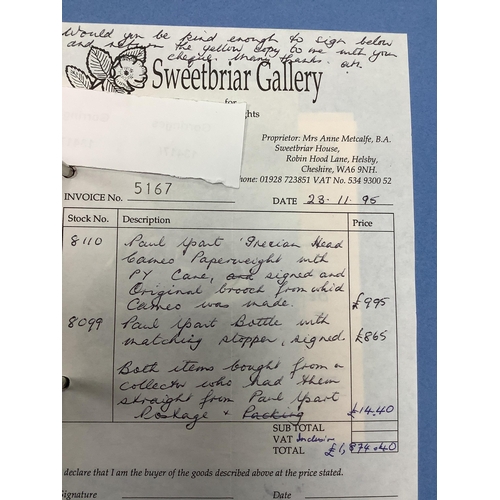 Would you be kind enough to sign below
and return the yellow copy to me with your
cheque. Many thanks. AM.
Sweetbriar Gallery
for
ghts
Proprietor: Mrs Anne Metcalfe, B.A.
Sweetbriar House,
Robin Hood Lane, Helsby,
Cheshire, WA6 9NH.
hone: 01928 723851 VAT No. 534 9300 52
INVOICE No. 5167 DATE 28-11-95
Stock No. Description Price
8110 Paul Ysart 'Grecian Head
Cameo' Paperweight with
PY Cane, and signed and
Original brooch from which
Cameo was made. £995
8099 Paul Ysart Bottle with
matching stopper, signed. £865
Both items bought from a
collector who had them
straight from Paul Ysart
Postage + Packing £14.40
SUB TOTAL
VAT Inclusive
TOTAL £1,874.40
declare that I am the buyer of the goods described above at the price stated.
Signature Date